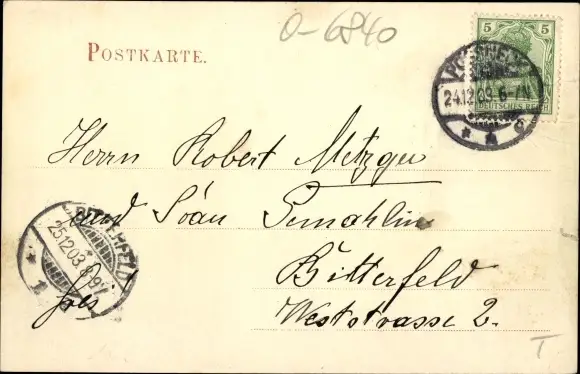 O-6840
POSTKARTE.
5 5
DEUTSCHES REICH
24.12.03. 6-7N.
Herrn Robert Metzger
und Gemahlin
BITTERFELD
25.12.03. 8-9V.
1
Bitterfeld
Weststrasse 2.
T